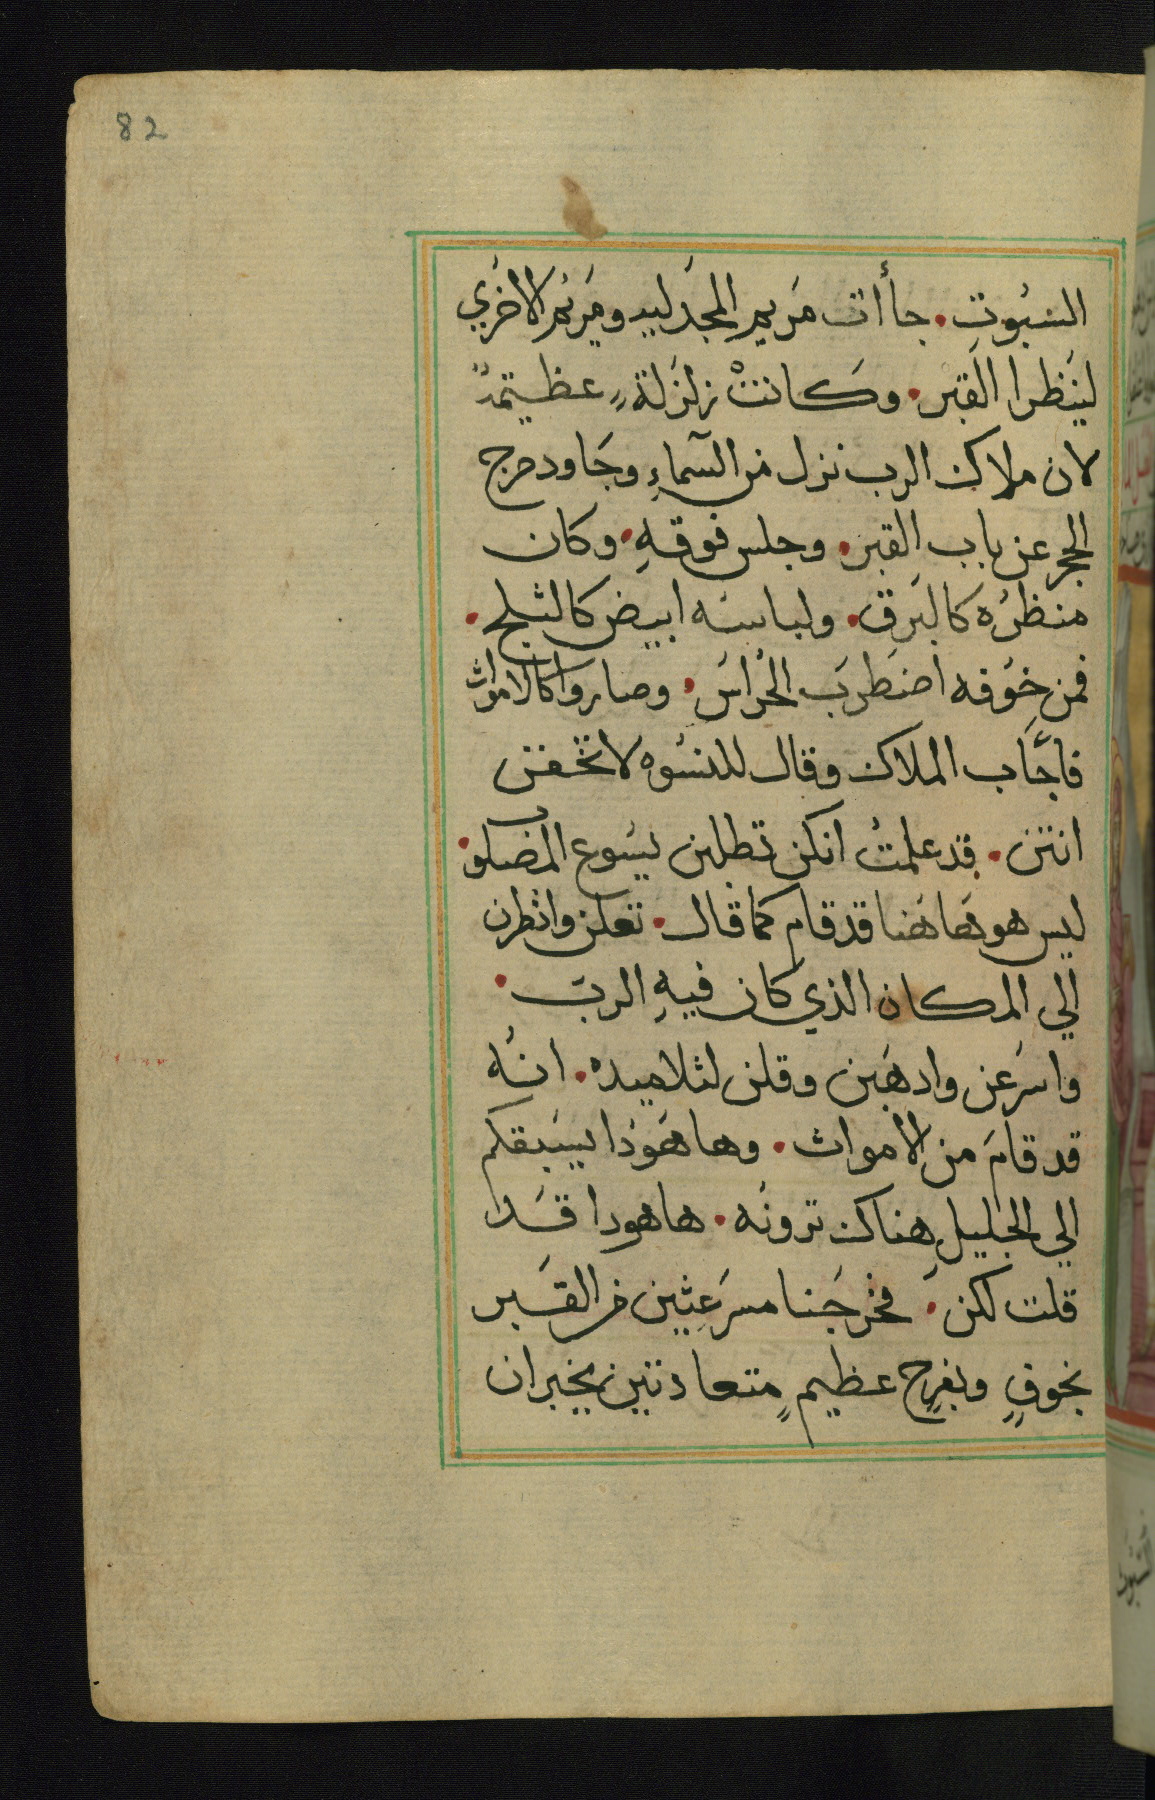 82
السبوت. جاأات مريم المجدليه ومريم الاخري
لينظرا القبر. وكانت زلزلة عظيمة
لان ملاك الرب نزل من السماء وجا ودحرج
الحجر عن باب القبر. وجلس فوقه. وكان
منظره كالبرق. ولباسه ابيض كالثلج.
فمن خوفه اضطرب الحراس. وصاروا كالاموات
فاجاب الملاك وقال للنسوه لا تخفن
انتن. قد علمت انكن تطلبن يسوع المصلوب.
ليس هو هاهنا قد قام كما قال. تعلن وانظرن
الي المكان الذي كان فيه الرب.
واسرعن وادهبن وقلن لتلاميده. انه
قد قام من الأموات. وها هودا يسبقكم
الي الجليل هناك ترونه. ها هودا قد
قلت لكن. فخرجنا مسرعتين من القبر
بخوف وبفرح عظيم متعادتين يخبران